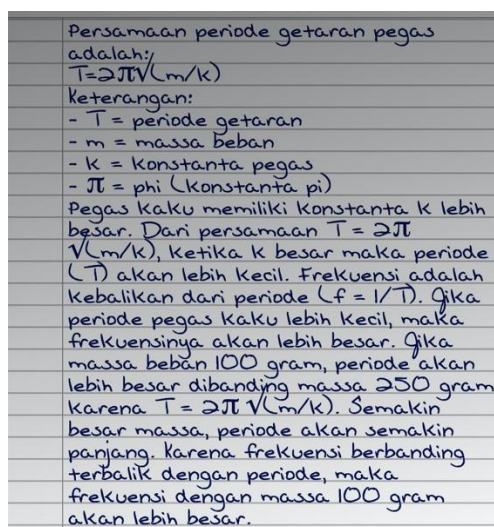 Persamaan periode getaran pegas
adalah:
T=2π√(m/k)
Keterangan:
- T = periode getaran
- m = massa beban
- k = konstanta pegas
- π = phi (konstanta pi)
Pegas kaku memiliki konstanta k lebih
besar. Dari persamaan T = 2π
√(m/k), ketika k besar maka periode
(T) akan lebih kecil. Frekuensi adalah
kebalikan dari periode (f = 1/T). Jika
periode pegas kaku lebih kecil, maka
frekuensinya akan lebih besar. Jika
massa beban 100 gram, periode akan
lebih besar dibanding massa 250 gram
karena T = 2π √(m/k). Semakin
besar massa, periode akan semakin
panjang. Karena frekuensi berbanding
terbalik dengan periode, maka
frekuensi dengan massa 100 gram
akan lebih besar.